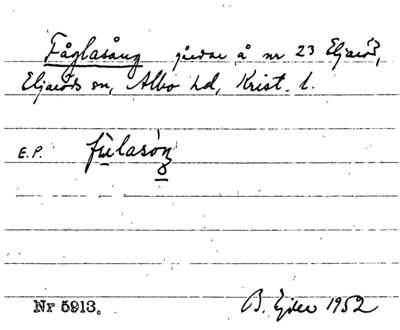 Fåglasång gärde å nr 23 Eljaröd,
Eljaröds sn, Albo hd, Krist. l.
E.P. fùlasóŋ
Nr 5913.
B. Ejder 1952